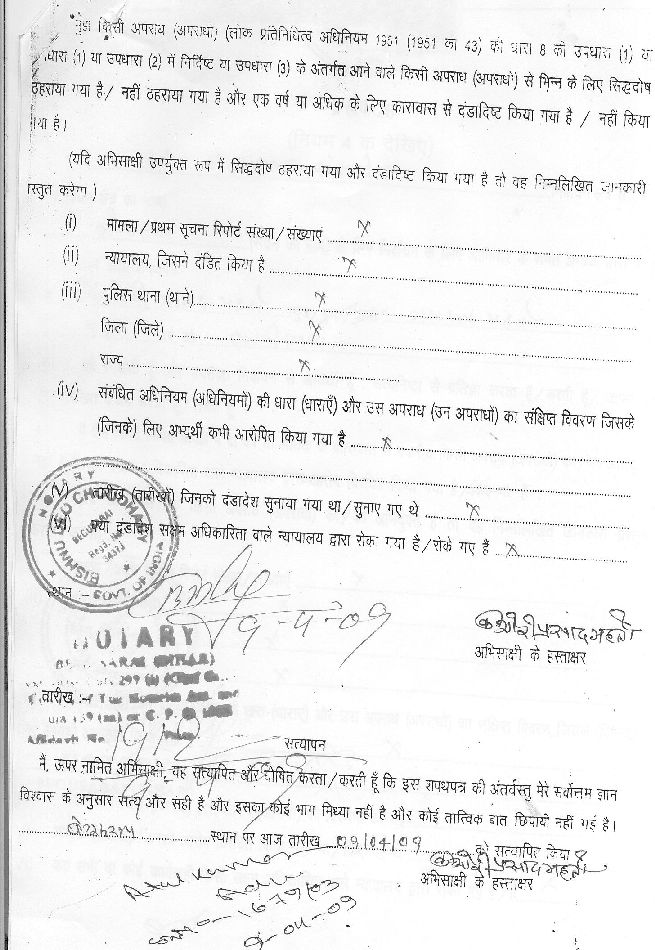 किसी अपराध (अपराधों) (लोक प्रतिनिधित्व अधिनियम 1951 (1951 का 43) की धारा 8 की उपधारा (1) या
उपधारा (1) या उपधारा (2) में निर्दिष्ट या उपधारा (3) के अंतर्गत आने वाले किसी अपराध (अपराधों) से भिन्न के लिए सिद्धदोष
ठहराया गया है/ नहीं ठहराया गया है और एक वर्ष या अधिक के लिए कारावास से दंडादिष्ट किया गया है / नहीं किया
गया है।
(यदि अभिसाक्षी उपर्युक्त रूप में सिद्धदोष ठहराया गया और दंडादिष्ट किया गया है तो वह निम्नलिखित जानकारी
प्रस्तुत करेगा)
(i) मामला/प्रथम सूचना रिपोर्ट संख्या/संख्याएं ........ X
(ii) न्यायालय, जिसने दंडित किया है ........ X
(iii) पुलिस थाना (थाने)........ X
जिला (जिले) ........ X
राज्य ........ X
(iv) संबंधित अधिनियम (अधिनियमों) की धारा (धाराएँ) और उस अपराध (उन अपराधों) का संक्षिप्त विवरण जिसके
(जिनके) लिए अभ्यर्थी कभी आरोपित किया गया है ........ X
(v) तारीख (तारीखों) जिनको दंडादेश सुनाया गया था/सुनाए गए थे ........ X
(vi) क्या दंडादेश सक्षम अधिकारिता वाले न्यायालय द्वारा रोक गया है/रोके गए हैं ........ X
NOTARY
BISHNUDEO CHOUDHARY
BEGUSARAI
GOVT. OF
स्थान :-
9-4-09
अभिसाक्षी के हस्ताक्षर
NOTARY
तारीख :-
1912
सत्यापन
मैं, ऊपर नामित अभिसाक्षी, यह सत्यापित और घोषित करता/करती हूँ कि इस शपथपत्र की अंतर्वस्तु मेरे सर्वोत्तम ज्ञान
विश्वास के अनुसार सत्य और सही है और इसका कोई भाग मिथ्या नही है और कोई तात्विक बात छिपायी नहीं गई है।
स्थान पर आज तारीख 09/04/09 को सत्यापित किया
अभिसाक्षी के हस्ताक्षर
1679/03
9-04-09